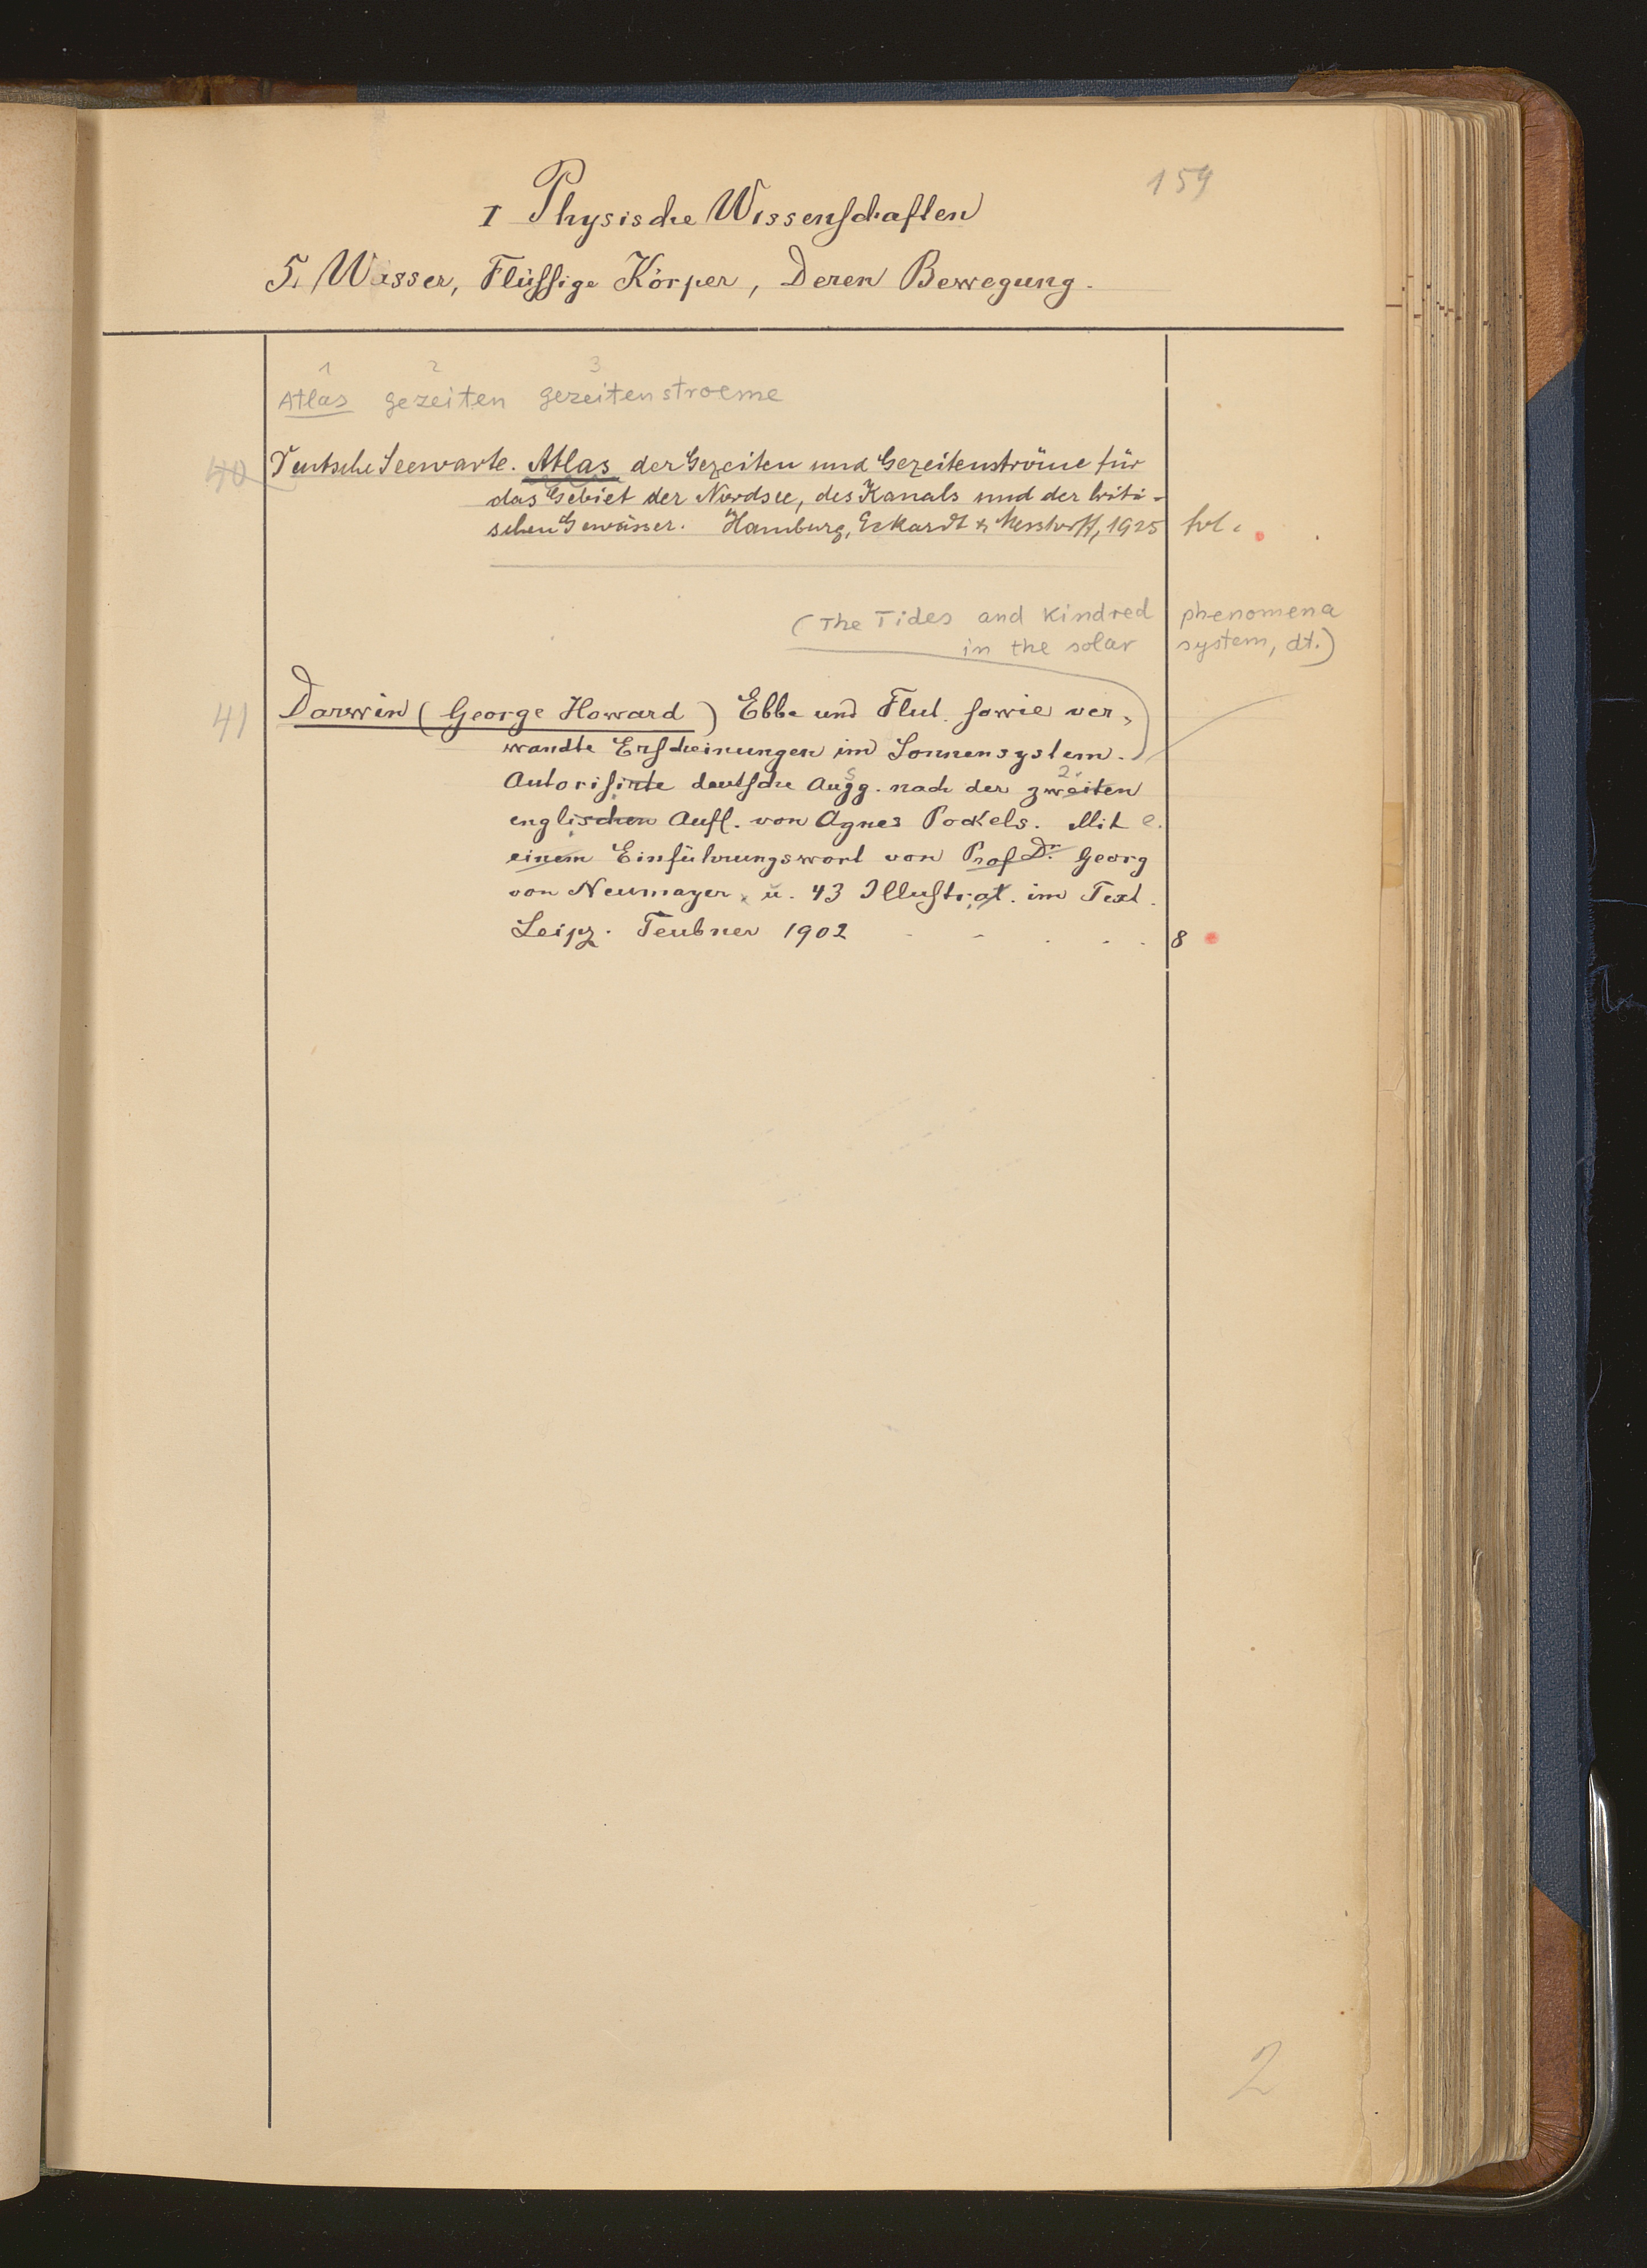 159
I Physische Wissenschaften
5. Wasser, Flüssige Körper, Deren Bewegung.
1 2 3
Atlas gezeiten gezeitenstroeme
40 Deutsche Seewarte. Atlas der Gezeiten und Gezeitenströme für
das Gebiet der Nordsee, des Kanals und der briti-
schen Gewässer. Hamburg, Eckardt & Messtorff, 1925 fol.
(The Tides and Kindred phenomena
in the solar system, dt.)
41 Darwin (George Howard) Ebbe und Flut sowie ver-
wandte Erscheinungen im Sonnensystem.
s 2.
Autorisirte deutsche Ausg. nach der zweiten
englischen Aufl. von Agnes Pockels. Mit e.
einem Einführungswort von Prof Dr. Georg
von Neumayer u. 43 Illustrat. im Text.
Leipz. Teubner 1902 . . . . . 8
2